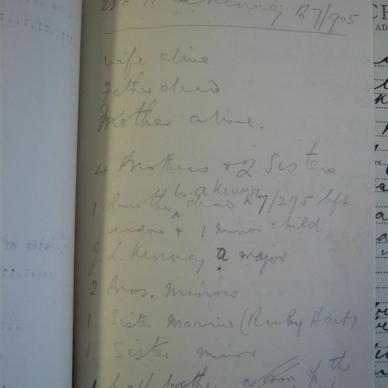 Kenney 127/905
wife alive
Father dead
Mother alive.
4 Brothers & 2 Sisters
1 Brother dead 127/275 left
Kenney
widow & 1 minor child
J. L. Kenney a major
2 Bros. minors
1 Sister Married (Ruby Hart)
1 Sister minor
1 half brother a son of the